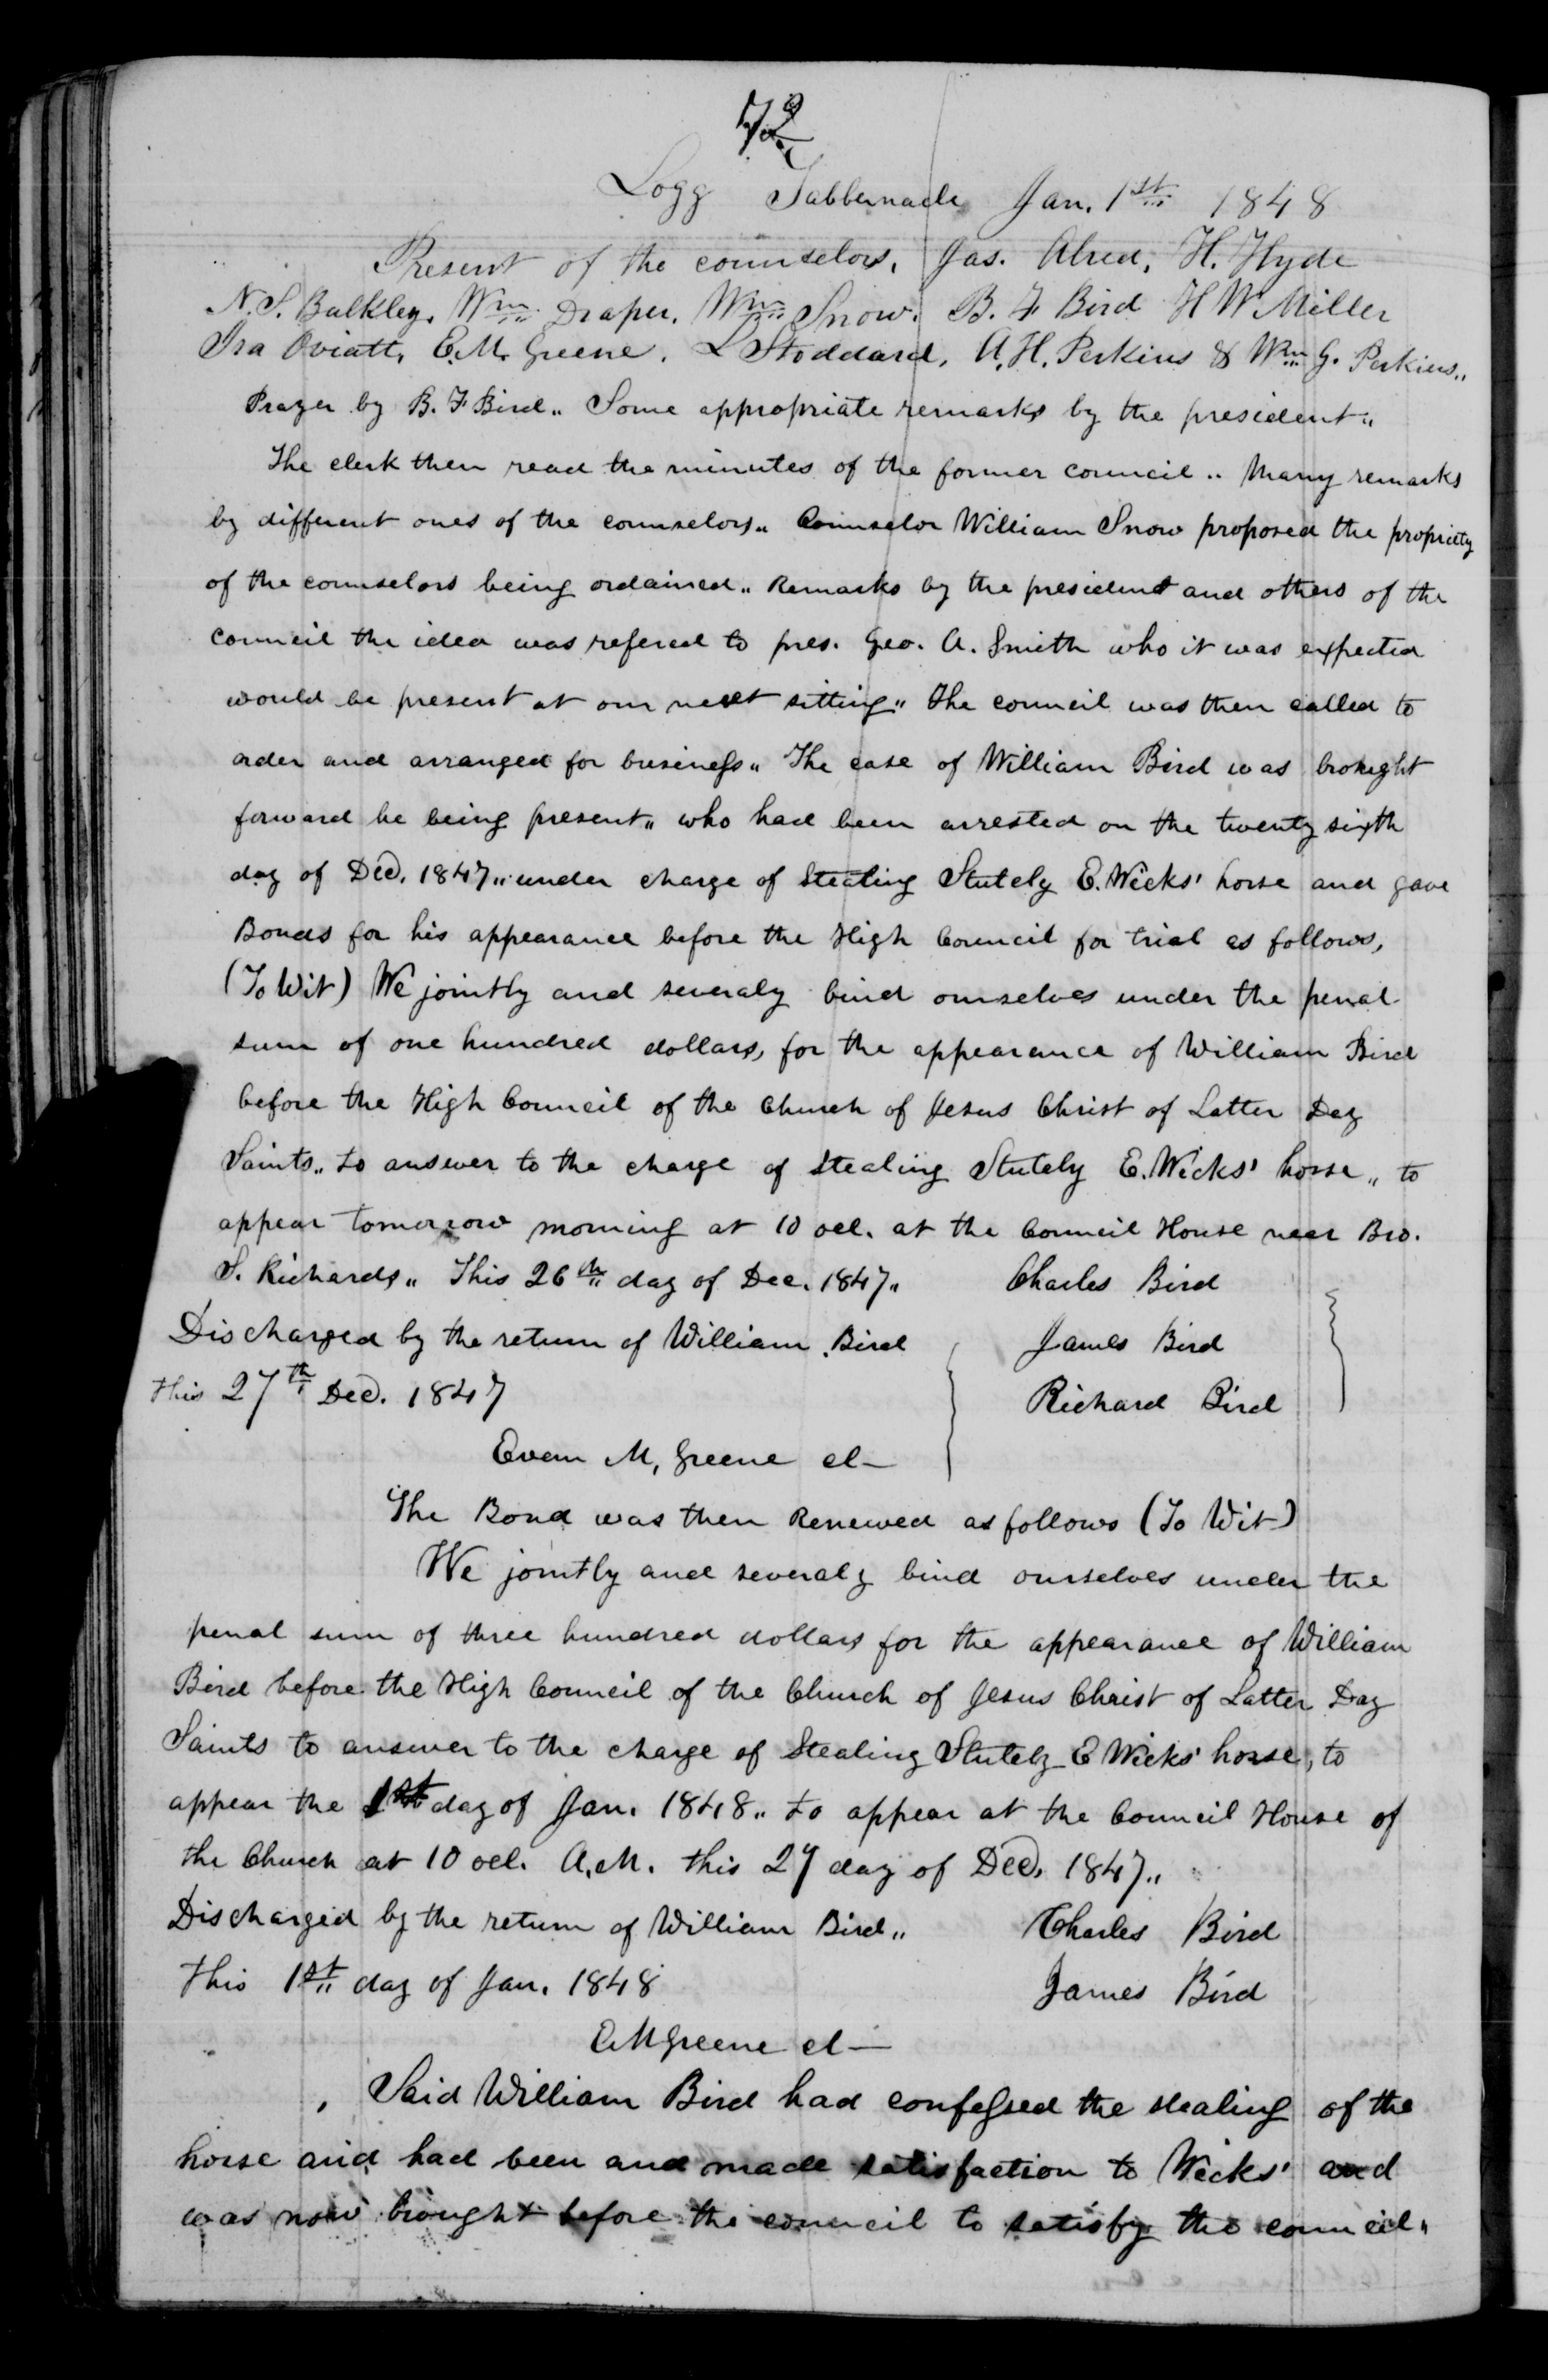 72
Logg Tabbernacle Jan. 1st 1848
Present of the counselors, Jas. Alred, H. Hyde
N. S. Bulkley, Wm Draper, Wm Snow, B. F. Bird H W Miller
Ira Oviatt, E. M. Greene, L Stoddard, A. H. Perkins & Wm G. Perkins„
Prayer by B. F Bird„ Some appropriate remarks by the president„
The clerk then read the minutes of the former council„ Many remarks
by different ones of the counselors„ Counselor William Snow proposed the propriety
of the counselors being ordained„ Remarks by the president and others of the
council the idea was refered to pres. Geo. A. Smith who it was expected
would be present at our next sitting„ The council was then called to
order and arranged for business„ The case of William Bird was brought
forward he being present„ who had been arrested on the twenty sixth
day of Dec. 1847„ under charge of stealing Stutely E. Wicks' horse and gave
Bonds for his appearance before the High Council for trial as follows,
(To Wit) We jointly and severaly bind ourselves under the penal
sum of one hundred dollars, for the appearance of William Bird
before the High Council of the Church of Jesus Christ of Latter Day
Saints„ to answer to the charge of stealing Stutely E. Wicks' horse„ to
appear tomorrow morning at 10 ocl. at the Council House near Bro.
S. Richards„ This 26th day of Dec. 1847„ Charles Bird
Discharged by the return of William Bird James Bird
this 27th Dec. 1847 Richard Bird
Evan M, Greene cl—
The Bond was then Renewed as follows (To Wit)
We jointly and severaly bind ourselves under the
penal sum of three hundred dollars for the appearance of William
Bird before the High Council of the Church of Jesus Christ of Latter Day
Saints to answer to the charge of Stealing Stutely E Wicks' horse, to
appear the 1st day of Jan. 1848„ to appear at the Council House of
the Church at 10 ocl. A.M. this 27 day of Dec. 1847„
Discharged by the return of William Bird„ Charles Bird
this 1st day of Jan. 1848 James Bird
E M Greene cl—
Said William Bird had confessed the stealing of the
horse and had been and made satisfaction to Wicks' and
was now brought before the council to satisfy the council„